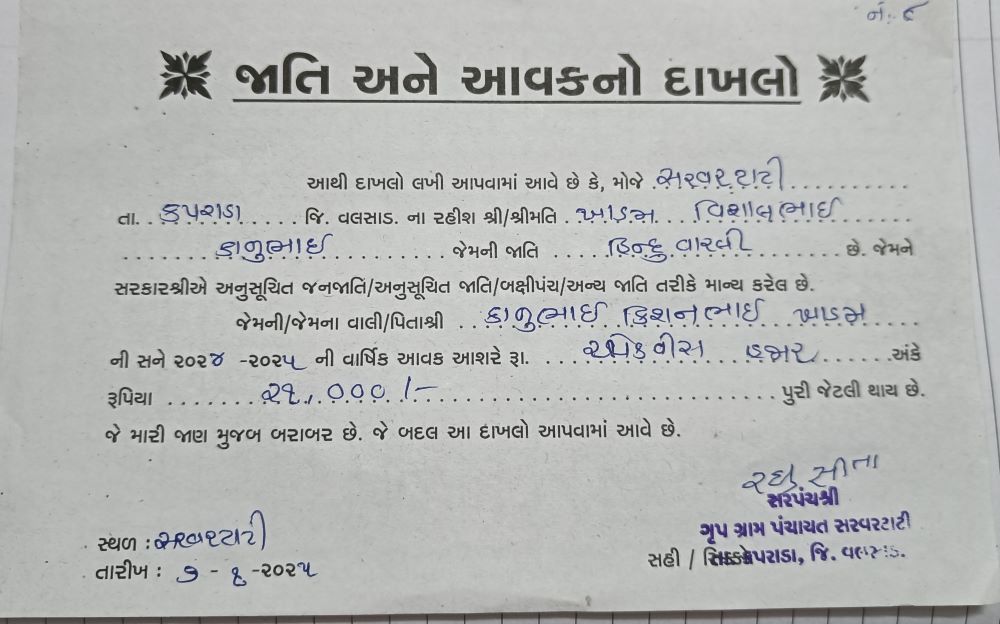 નં. ૬
જાતિ અને આવકનો દાખલો
આથી દાખલો લખી આપવામાં આવે છે કે, મોજે સરવરટાટી
તા. કપરાડા જિ. વલસાડ. ના રહીશ શ્રી/શ્રીમતિ ખાડમ વિશાલભાઈ
કાનુભાઈ જેમની જાતિ હિન્દુ વારલી છે. જેમને
સરકારશ્રીએ અનુસૂચિત જનજાતિ/અનુસૂચિત જાતિ/બક્ષીપંચ/અન્ય જાતિ તરીકે માન્ય કરેલ છે.
જેમની/જેમના વાલી/પિતાશ્રી કાનુભાઈ કિશનભાઈ ખાડમ
ની સને ૨૦૨૪ -૨૦૨૫ ની વાર્ષિક આવક આશરે રૂા. એકવીસ હજાર અંકે
રૂપિયા ૨૧,૦૦૦/- પુરી જેટલી થાય છે.
જે મારી જાણ મુજબ બરાબર છે. જે બદલ આ દાખલો આપવામાં આવે છે.
સરપંચશ્રી
ગૃપ ગ્રામ પંચાયત સરવરટાટી
સ્થળ : સરવરટાટી
સહી / સિક્કો કપરાડા, જિ. વલસાડ.
તારીખ : ૭ - ૬ -૨૦૨૫